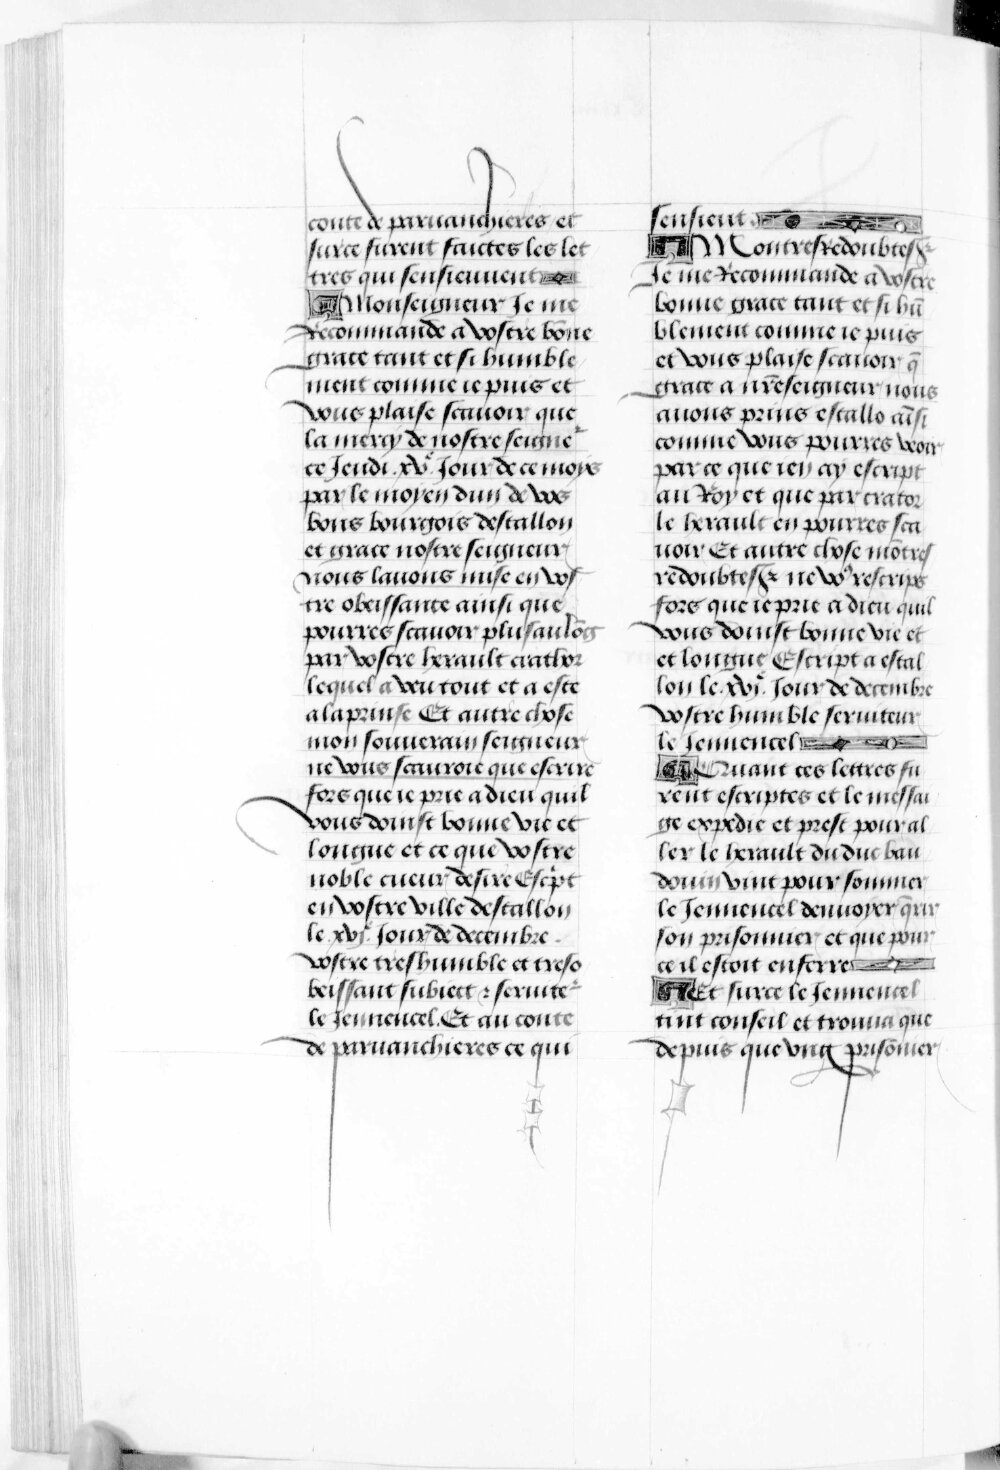 conte de paruanchieres et
surce furent faictes les let
tres qui sensieuuent
Monseigneur Je me
Recommande a vostre bōne
grace tant et si humble
ment comme ie puis et
vous plaise scauoir que
la mercy de nostre seigneʳ
ce Jeudi .xvᵉ. Jour de ce moys
par le moyen dun de voz
bons bourgois destallon
et grace nostre seigneur
nous lauons mise en vos
tre obeissante ainsi que
pourres scauoir plusaulōg
par vostre herault crathor
lequel a veu tout et a este
a laprinse Et autre chose
mon souuerain seigneur
ne vous scauroie que escrire
fors que ie prie a dieu quil
vous doinst bonne vie et
longue et ce que vostre
noble cueur desire Escp̄t
en vostre ville destallon
le .xvjᵉ. Jour de decembre .
vostre treshumble et treso
beissant subiect ⁊ seruiteʳ
le Jennencel. Et au conte
de paruanchieres ce qui
sensieut
Montresredoubtesgʳ
Je me Recommande a vostre
bonne grace tant et si hū
blement comme ie puis
et vous plaise scauoir q̄
grace a nr̄eseigneur nous
auons prins estallo aīsi
comme vous pourres veoir
par ce que ien ay escript
au Roy et que par crator
le herault en pourres sca
uoir Et autre chose mōtres
redoubtesgʳ ne voˢ rescrips
fors que ie prie a dieu quil
vous doinst bonne vie et
et longue Escript a estal
lon le .xvjᵉ. Jour de decembre
vostre humble seruiteur
le Jennencel
Quant ces lettres fu
rent escriptes et le messai
ge expedie et prest pour al
ler le herault du duc bau
douin vint pour sommer
le Jennencel denuoyer q̄rir
son prisonnier et que pour
ce il estoit enferre
Et surce le Jennencel
tint conseil et trouua que
depuis que vng prisōnier